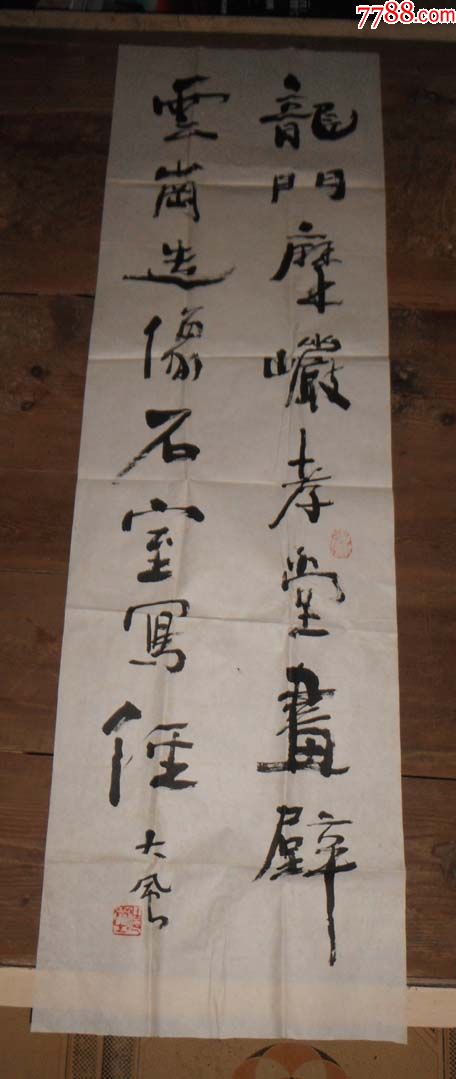 龍門摩巖孝堂畫壁
雲崗造像石室寫經
大風
7788.com